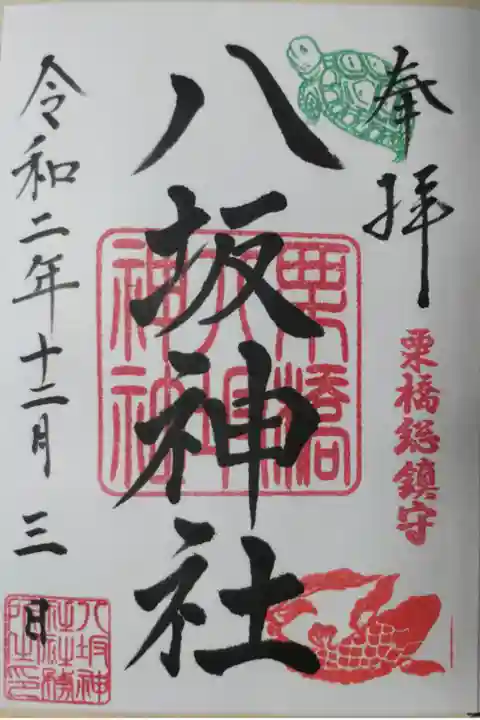 奉拝
栗橋総鎮守
八坂神社
栗橋八坂神社
令和二年十二月三日
八坂神社社務所之印